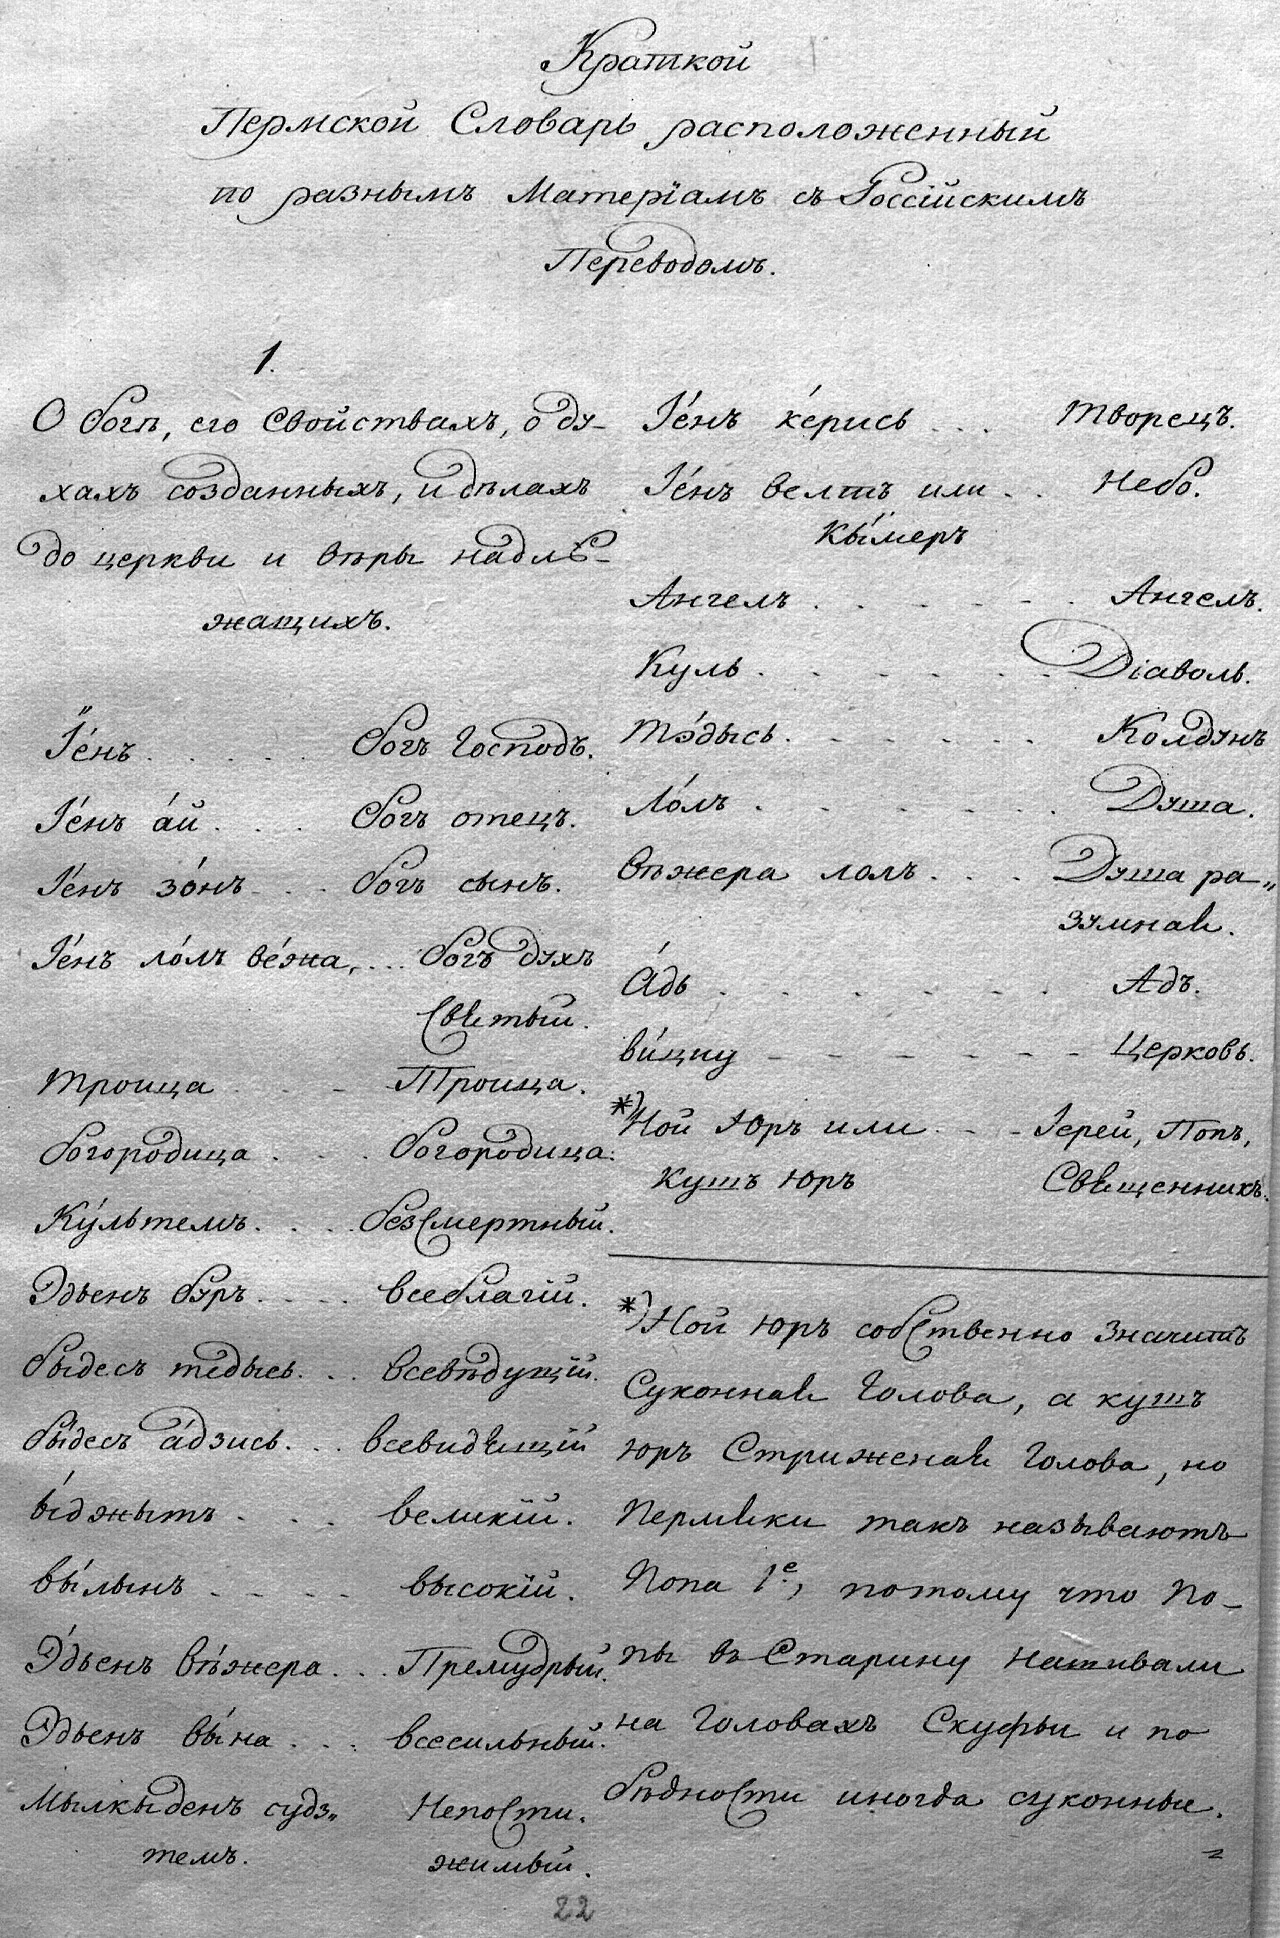 Краткой
Пермской Словарь расположенный
по разнымъ Матерїамъ съ Россїйскимъ
Переводомъ.
1.
О богѣ, его Свойствахъ, о ду-
хахъ созданныхъ, и дѣлахъ
до церкви и вѣры надлѣ-
жащихъ.
Іе́нъ . . . . . богъ Господь.
Іе́нъ а́й . . . богъ отецъ.
Іе́нъ зо́нъ . . . богъ сынъ.
Іе́нъ ло́лъ ве́жа, . . . богъ духъ
Святый.
Троица . . . Троица.
богородица . . . богородица.
Ку́льтемъ . . . . безсмертный.
Эдьенъ буръ . . . . всеблагїй.
быдесъ тѣдысь . . . всевѣдущїй.
бы́десъ а́дзись . . . всевидящїй
ы́джытъ . . . великїй.
вы́лынъ . . . . высокїй.
Э́дьенъ вѣ́жера . . . Премудрый.
Эдьенъ вы́на . . . всесильный.
Мылкыденъ судз„ Непости.
темъ. жимый.
Іе́нъ ке́рись . . . творецъ.
Іе́нъ велтъ или . . Небо.
кы́меръ
Ангелъ . . . . . . Ангелъ.
Куль . . . . . . Dіаволъ.
тэ́дысь . . . . . . Колдунъ
Ло́лъ . . . . . . Душа.
вѣжера лолъ . . . Душа ра„
зумная.
А́дъ . . . . . . Адъ.
ви́цку - - - - - - Церковь.
*) Ной Юръ или - - - Іерей, Попъ,
кутъ юръ Священникъ.
*) Ной юръ собственно значитъ
Суконная Голова, а кутъ
юръ Стриженая Голова, но
Пермяки такъ называютъ
Попа 1е, потому что По-
пы въ Старину нашивали
на Головахъ Скуфьи и по
бѣдности иногда суконные.
22